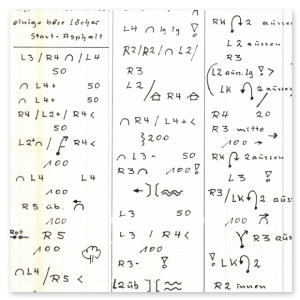 einige böse Löcher
Start-Asphalt
L3 / R4 ∩ / L4
50
∩ L4+ 50
∩ L4+ 50
R4 / L2+ / R4 <
50
/ R4 <
100
∩ L4 L4
100
R5 üb.
100
R5
100
∩ L4 / R5 <
L4 ∩ lg lg !
R2 / R2 / ∩ L2 /
R3
L2 / R4 ∩
∩ R4 / L4+ <
200
∩ L3- 50
R3 ∩ 100 !
← )( ≈
L3 50
L3 / R4 <
100
R3- !
L2 üb )( ≈
RK 2 aussen
L2 aussen
R3
(L2 aus. lg ! >
LK 2
R4 20
R3 mitte →
100 →
RK 2 aussen
L3 !
R3 / LK 2
100
R3
! LK 2
R2 innen